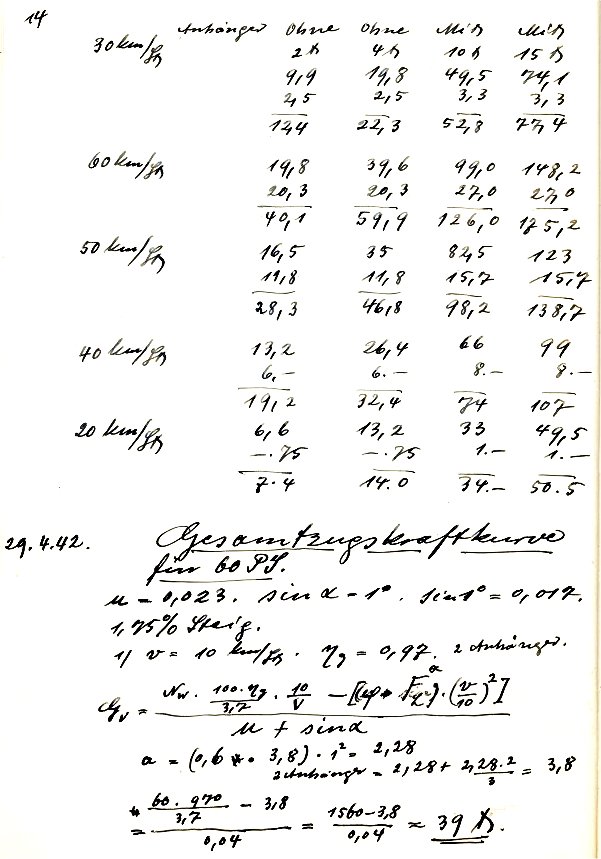 14
Anhänger Ohne Ohne Mit Mit
30 km/St 2 t 4 t 10 t 15 t
9,9 19,8 49,5 74,1
2,5 2,5 3,3 3,3
12,4 22,3 52,8 77,4
60 km/St 19,8 39,6 99,0 148,2
20,3 20,3 27,0 27,0
40,1 59,9 126,0 175,2
50 km/St 16,5 35 82,5 123
11,8 11,8 15,7 15,7
28,3 46,8 98,2 138,7
40 km/St 13,2 26,4 66 99
6,- 6.- 8.- 8.-
19,2 32,4 74 107
20 km/St 6,6 13,2 33 49,5
-.75 -.75 1.- 1.-
7.4 14.0 34.- 50.5
29.4.42. Gesamtzugskraftkurve
für 60 PS.
µ = 0,023. sin α = 1°. sin 1° = 0,017.
1,75% Steig.
1/ v = 10 km/St. ηg = 0,97. 2 Anhänger.
Gv = Nw. 100.ηg / 3,7 . 10/V - [(φ . F)α . (v/10)²] / µ + sin α
a = (0,6 . 3,8) . 1² = 2,28
2 Anhänger = 2,28 + 2,28.2/3 = 3,8
= 60.970 / 3,7 - 3,8 / 0,04 = 1560-3,8 / 0,04 = 39 t.